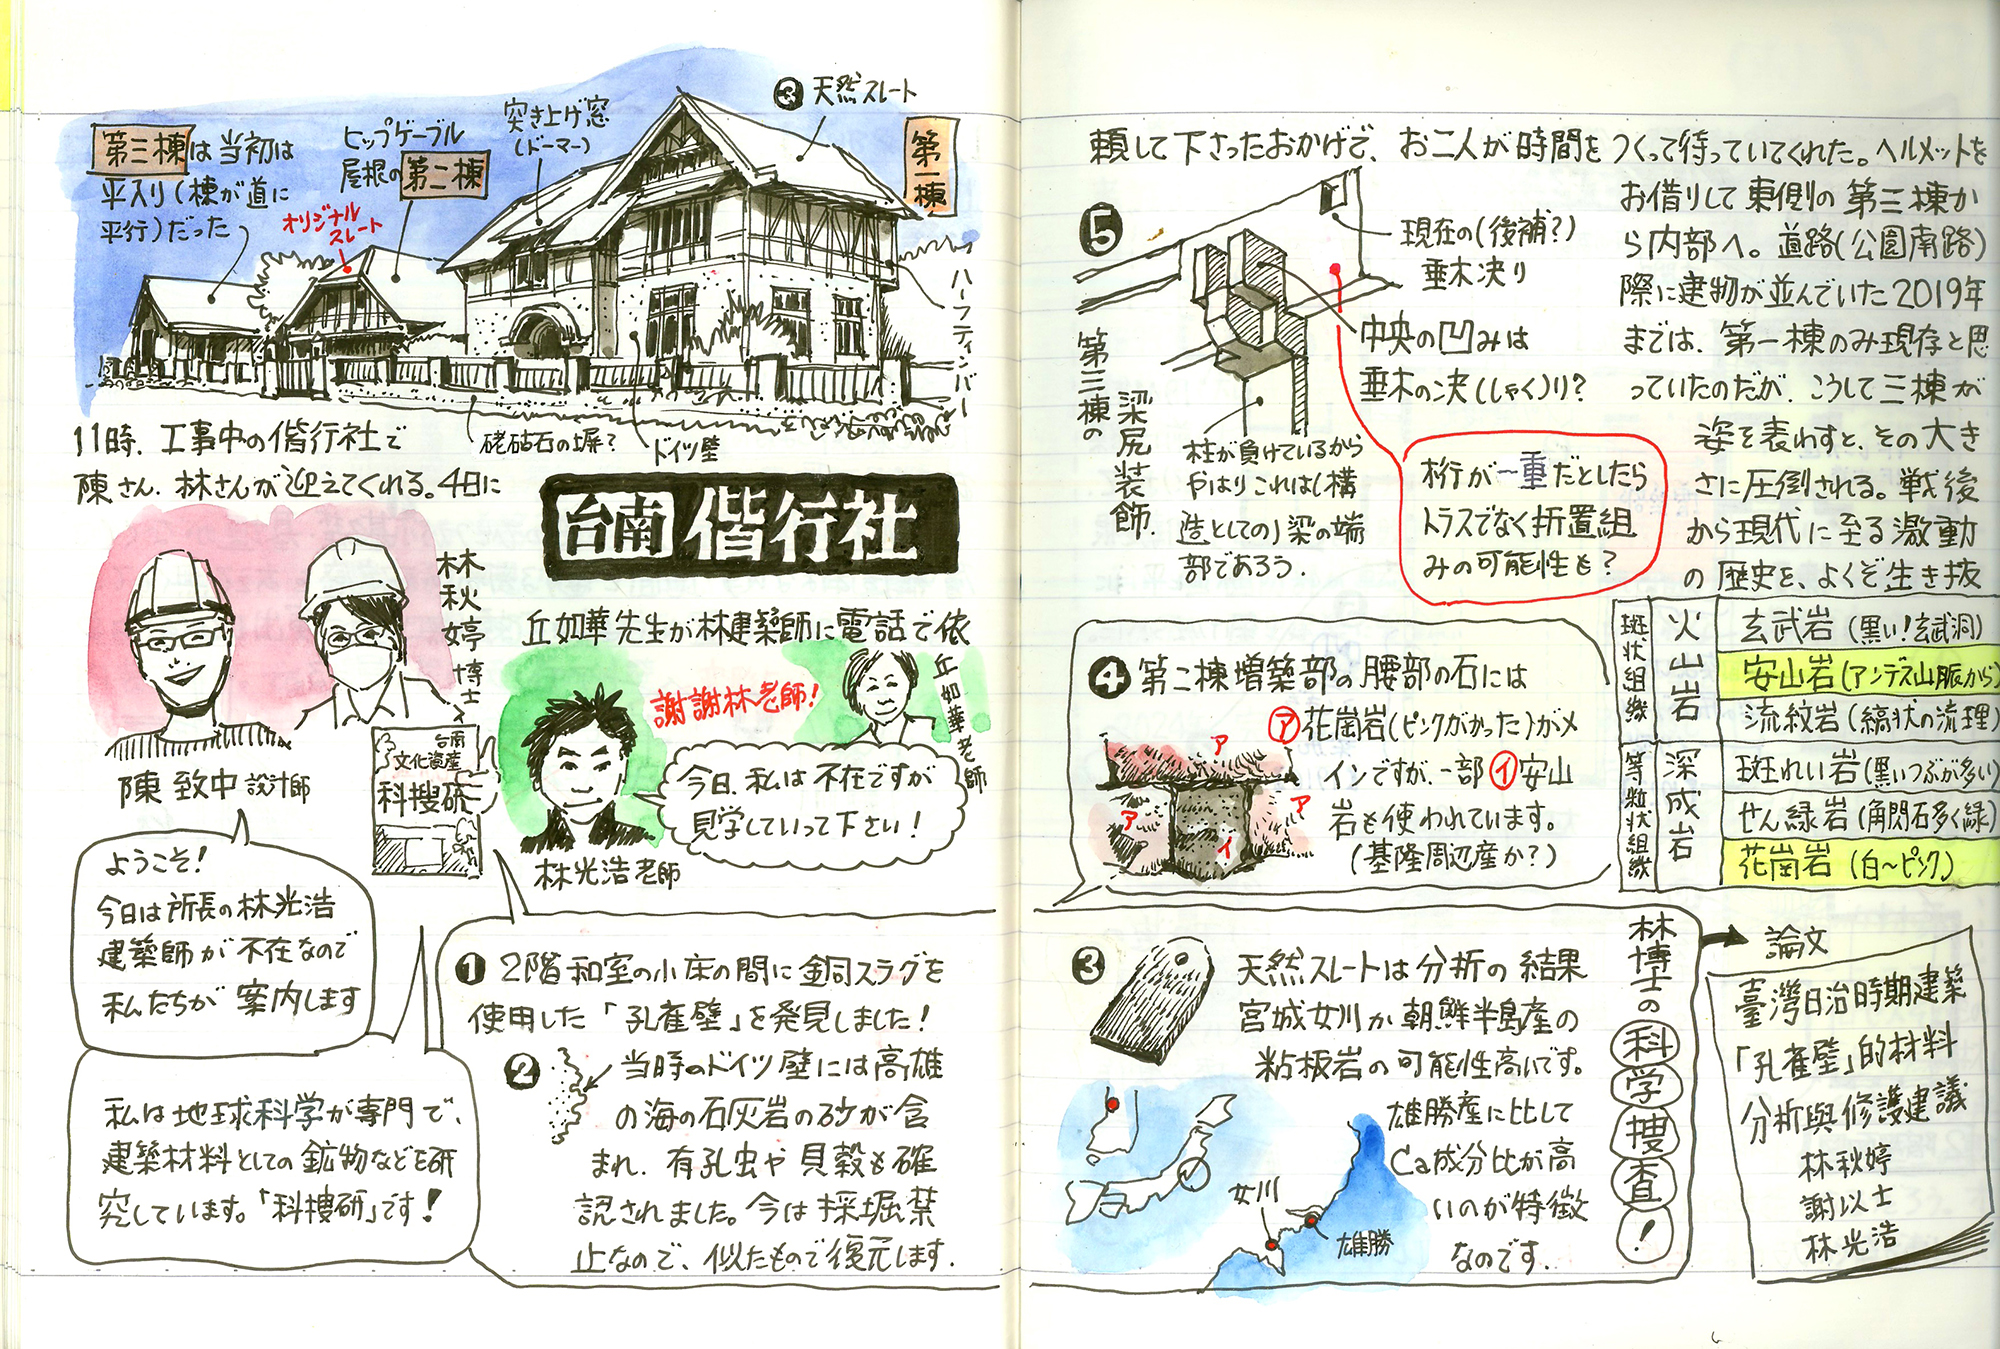 第三棟は当初は
平入り(棟が道に
平行)だった
ヒップゲーブル
屋根の第二棟
オリジナル
スレート
突き上げ窓
(ドーマー)
❸天然スレート
第一棟
ハーフティンバー
硓𥑮石の塀?
ドイツ壁
11時、工事中の偕行社で
陳さん、林さんが迎えてくれる。4日に
台南偕行社
丘如華先生が林建築師に電話で依
林秋婷博士
陳致中設計師
台南
文化資産
科搜研
謝謝林老師!
丘如華老師
林光浩老師
今日、私は不在ですが
見学していって下さい!
ようこそ!
今日は所長の林光浩
建築師が不在なので
私たちが案内します
私は地球科学が専門で、
建築材料としての鉱物などを研
究しています。「科搜研」です!
❶2階和室の小床の間に銅スラグを
使用した「孔雀壁」を発見しました!
❷当時のドイツ壁には高雄
の海の石灰岩の砂が含
まれ、有孔虫や貝殻も確
認されました。今は採掘禁
止なので、似たもので復元します.
頼して下さったおかげで、お二人が時間をつくって待っていてくれた。ヘルメットを
お借りして東側の第三棟か
ら内部へ。道路(公園南路)
際に建物が並んでいた2019年
までは、第一棟のみ現存と思
っていたのだが、こうして三棟が
姿を表わすと、その大き
さに圧倒される。戦後
から現代に至る激動
の歴史を、よくぞ生き抜
❺
第三棟の
梁尻装飾.
現在の(後補?)
垂木决り
中央の凹みは
垂木の决(しゃく)り?
柱が負けているから
やはりこれは(構
造としての)梁の端
部であろう.
桁行が一重だとしたら
トラスでなく折置組
みの可能性も?
❹第二棟増築部の腰部の石には
㋐花崗岩(ピンクがかった)がメ
インですが、一部㋑安山
岩も使われています。
(基隆周辺産か?)
ア
ア
ア
イ
斑状組織
火山岩
玄武岩(黒い!玄武洞)
安山岩(アンデス山脈から)
流紋岩(縞状の流理)
等粒状組織
深成岩
斑れい岩(黒いつぶが多い)
せん緑岩(角閃石多く緑)
花崗岩(白〜ピンク)
❸天然スレートは分析の結果
宮城女川か朝鮮半島産の
粘板岩の可能性高いです。
雄勝産に比して
Ca成分比が高
いのが特徴
なのです.
女川
雄勝
林博士の科学捜査!
論文
臺灣日治時期建築
「孔雀壁」的材料
分析與修護建議
林秋婷
謝以士
林光浩